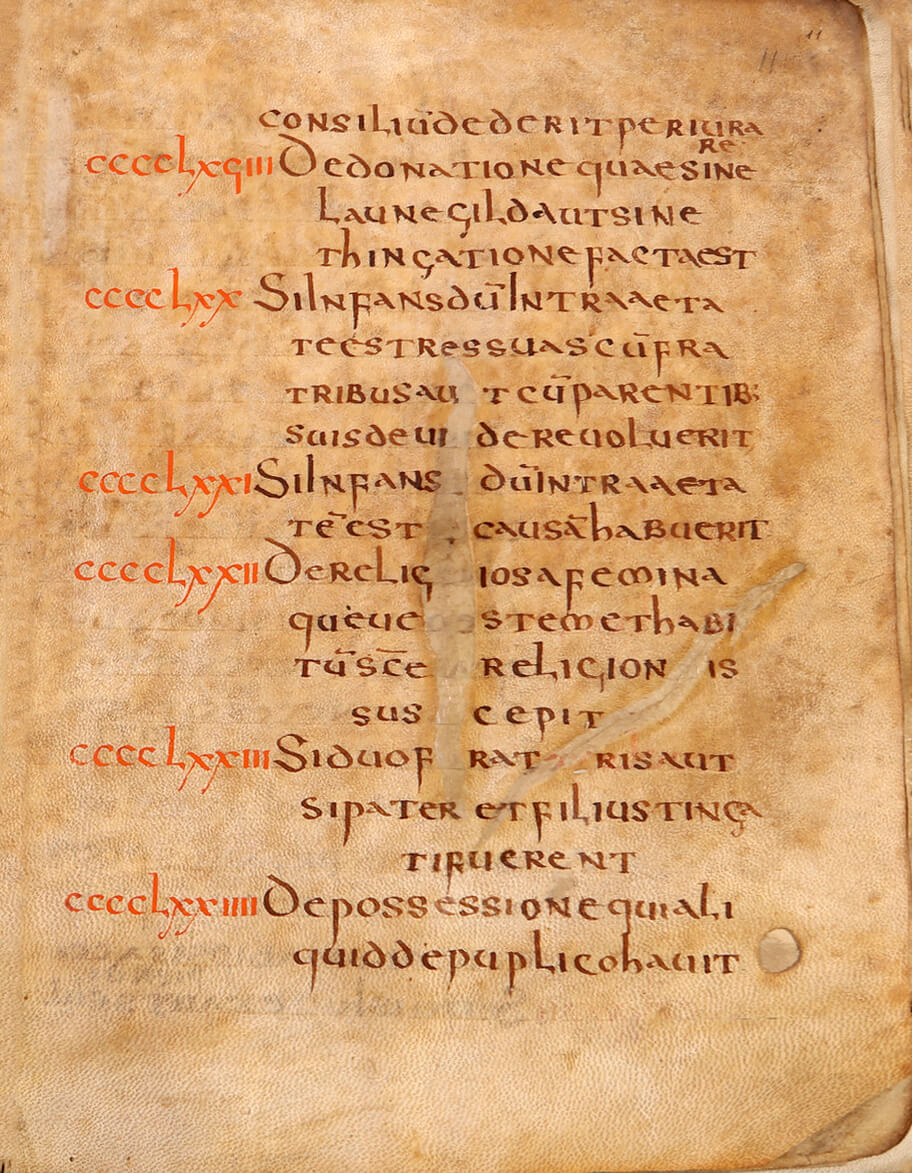 11
11
consiliū dederit periura
re
cccclxqiii De donatione quae sine
launegild aut sine
thingatione facta est
cccclxx Si Infans dū Intra aeta
te est res suas cū fra
tribus aut cū parentib;
suis deuidere uoluerit
cccclxxi Si Infans dū Intra aeta
tē est causā habuerit
cccclxxii De religiosa femina
que ueste met habi
tū scē religionis
suscepit
cccclxxiii Si duo fratris aut
si pater et filius tinga
ti fuerent
cccclxxiiii De possessione qui ali
quid de puplico hauit